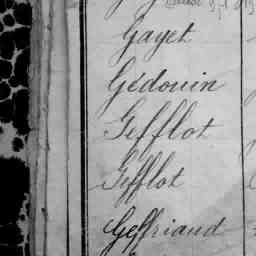 Gayet
Gédouin
Gefflot
Gefflot
Geffriaud